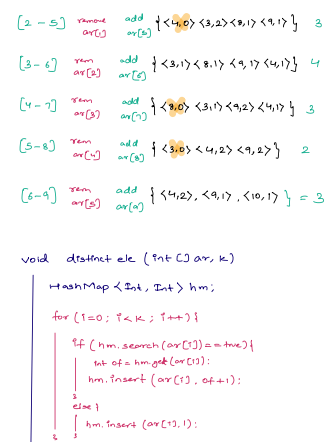 [2 - 5] remove ar[1] add ar[5] { <4,0> <3,2> <8,1> <9,1> } 3
[3-6] rem ar[2] add ar[6] { <3,1> <8,1> <9,1> <4,1> } 4
[4-7] rem ar[3] add ar[7] { <8,0> <3,1> <9,2> <4,1> } 3
[5-8] rem ar[4] add ar[8] { <3,0> <4,2> <9,2> } 2
[6-9] rem ar[5] add ar[9] { <4,2>, <9,1>, <10,1> } = 3
void distinct ele (int [] ar, k)
HashMap <Int, Int> hm;
for (i=0; i<k; i++) {
if (hm.search(ar[i]) == true) {
int of = hm.get(ar[i]);
hm.insert (ar[i], of+1);
}
else {
hm.insert (ar[i], 1);
} }